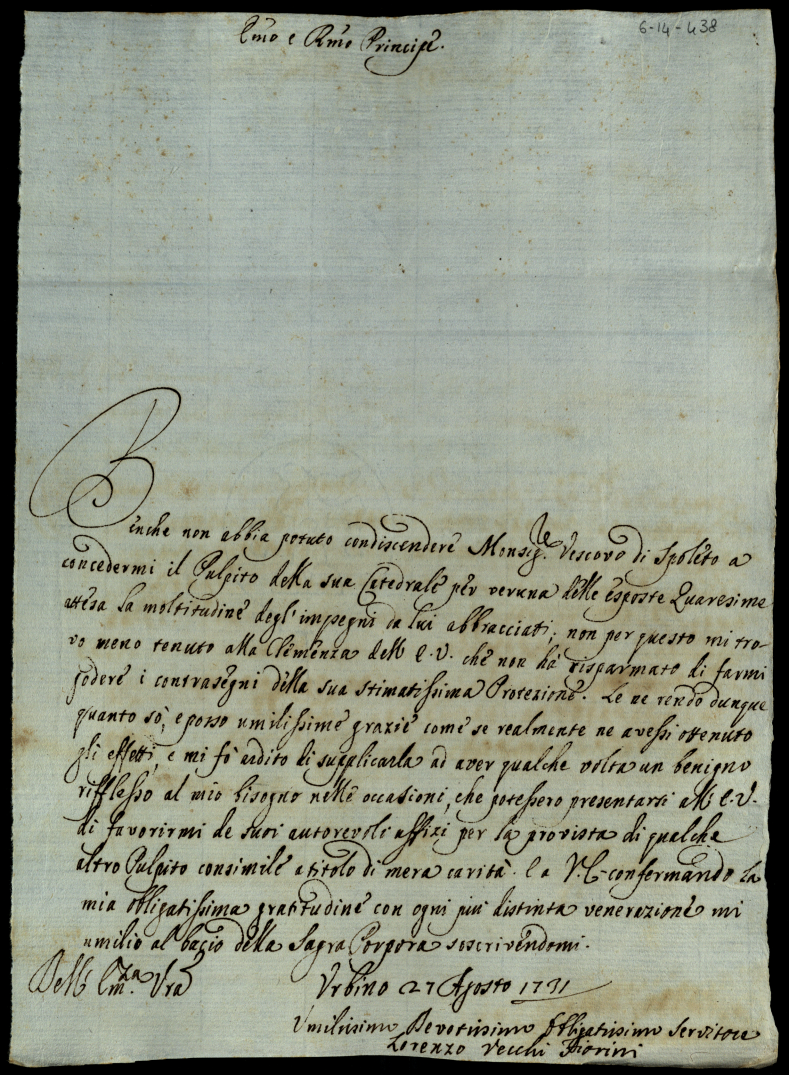 6-14-438
Emo e Rmo Principe.
Benche non abbia potuto condiscendere Monsig.re Vescovo di Spoleto a
concedermi il Pulpito della sua Catedrale per veruna delle esposte Quaresime
attesa la moltitudine degl'impegni da lui abbracciati, non per questo mi tro-
vo meno tenuto alla Clemenza dell'E.V. che non ha risparmato di farmi
godere i contrasegni della sua stimatissima Protezione. Le ne rendo dunque
quanto sò, e posso umilissime grazie come se realmente ne avessi ottenuto
gli effetti, e mi fò ardito di supplicarla ad aver qualche volta un benigno
riflesso al mio bisogno nelle occasioni, che potessero presentarsi all'E.V.
di favorirmi de suoi autorevoli uffizi per la provista di qualche
altro Pulpito consimile a titolo di mera carità. E a V.E. confermando la
mia obligatissima gratitudine con ogni più distinta venerazione mi
umilio al bacio della Sagra Porpora soscrivendomi.
Dell'Em.za Vra
Urbino 27 Agosto 1731
Umilissimo Devotissimo Obligatissimo Servitore
Lorenzo Vecchi Fiorini